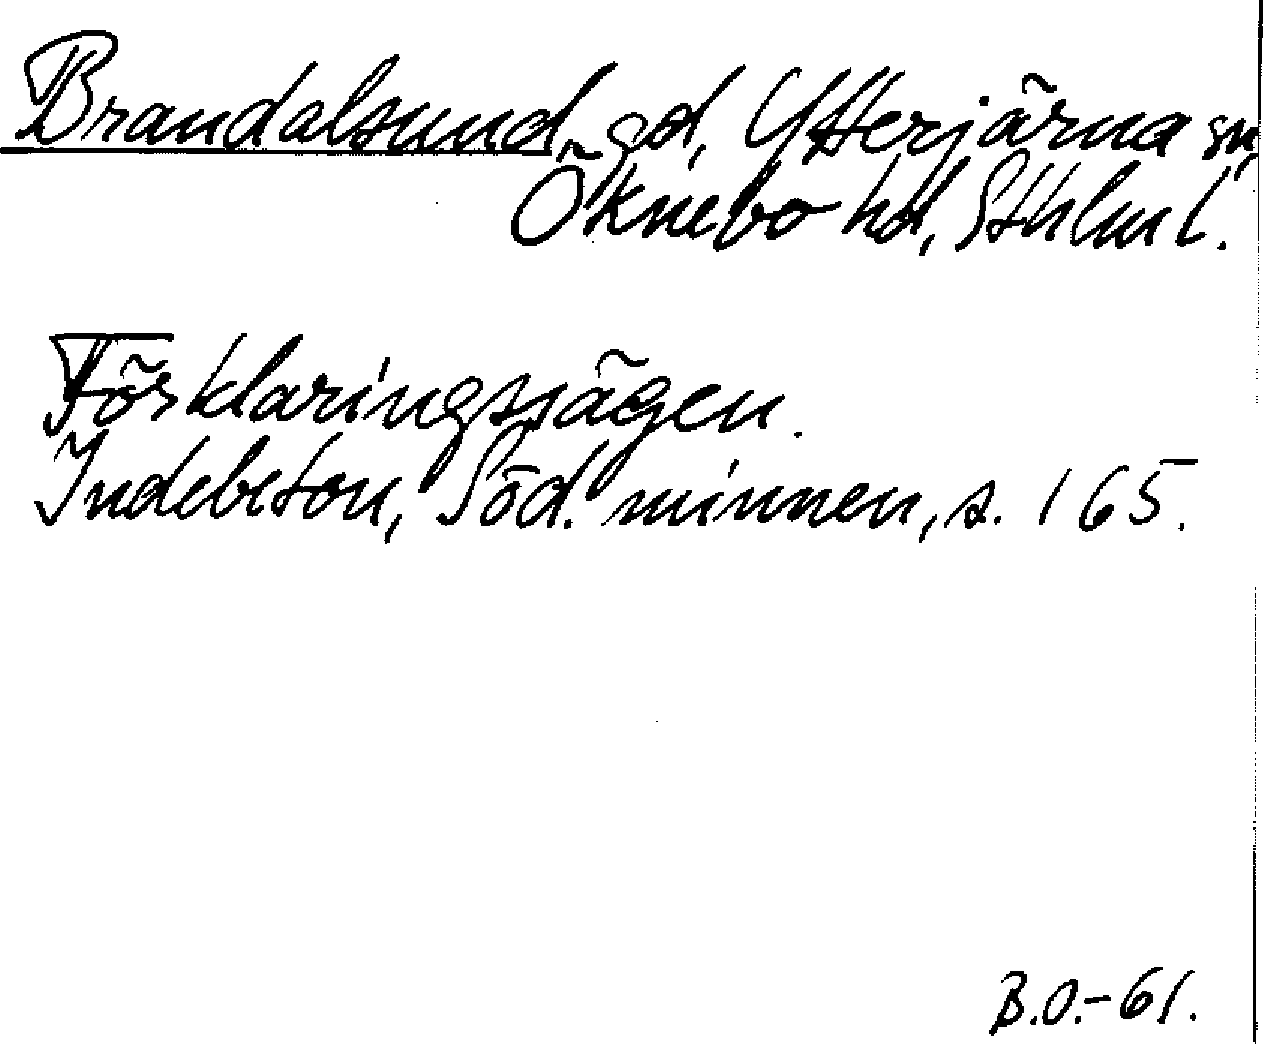 Brandalsund, gd, Ytterjärna sn,
Öknebo hd, Sthlm l.
Förklaringssägen.
Indebetou, Söd. minnen, s. 165.
B.O.-61.